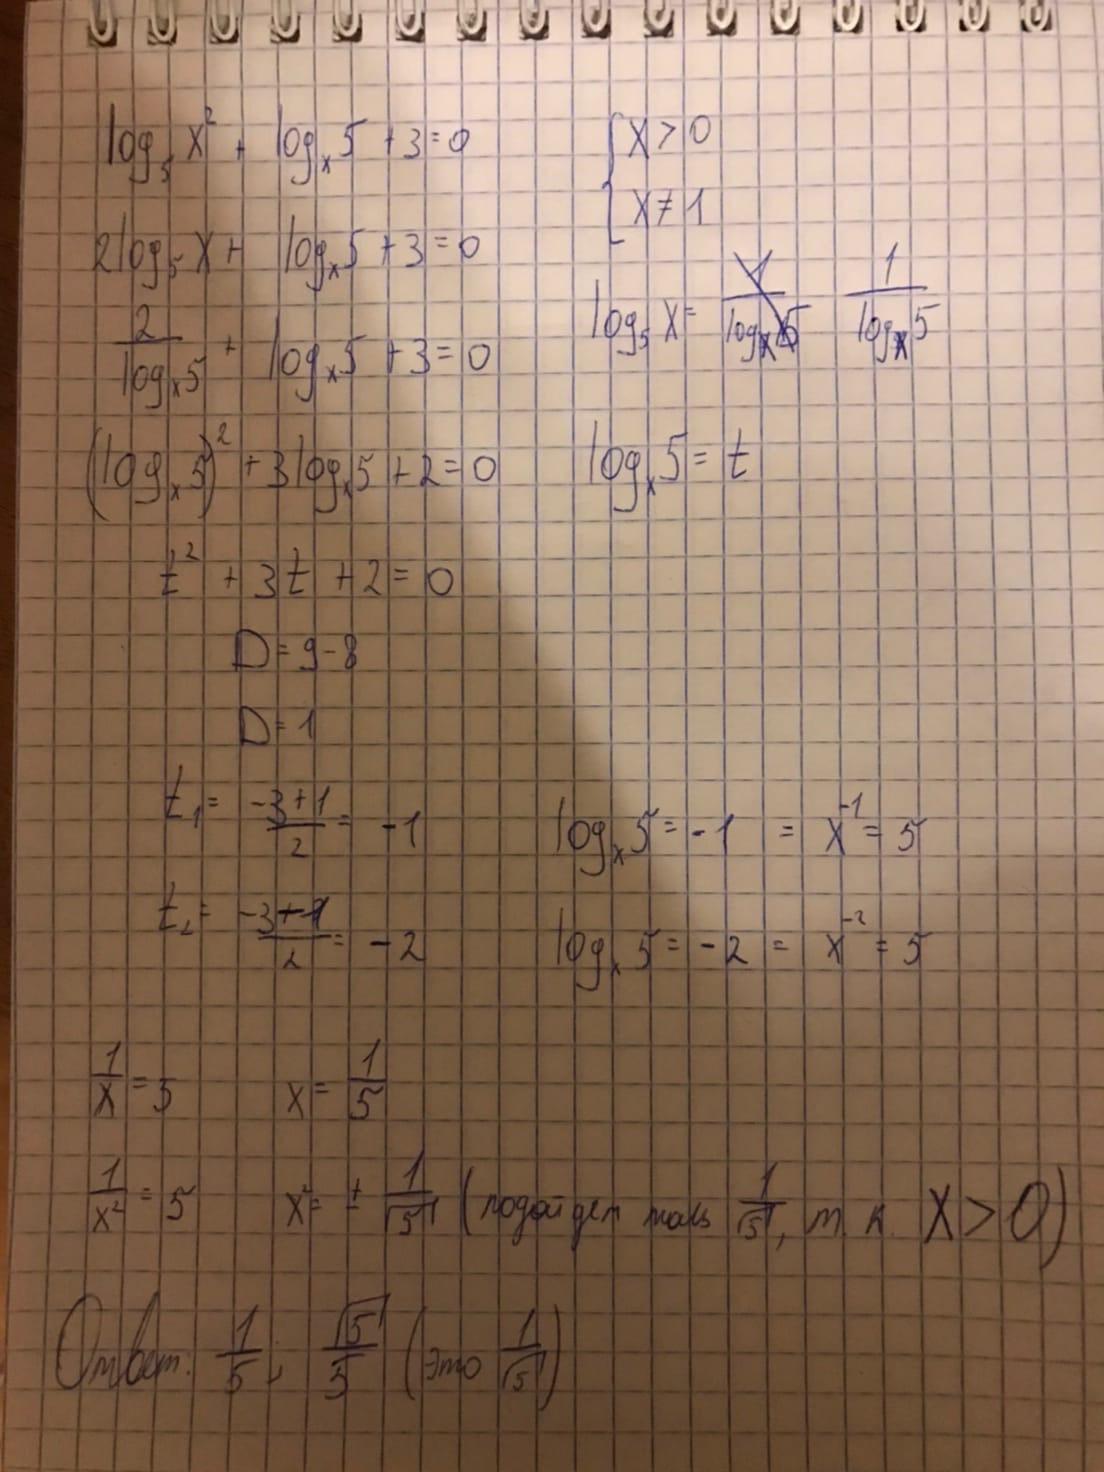 log₅ x² + logₓ 5 + 3 = 0
{ x > 0
x ≠ 1
2 log₅ x + logₓ 5 + 3 = 0
log₅ x = 1/(logₓ 5) 1/(logₓ 5)
2/(logₓ 5) + logₓ 5 + 3 = 0
(logₓ 5)² + 3 logₓ 5 + 2 = 0
logₓ 5 = t
t² + 3t + 2 = 0
D = 9 - 8
D = 1
t₁ = (-3+1)/2 = -1
logₓ 5 = -1 = x⁻¹ = 5
t₂ = (-3-1)/2 = -2
logₓ 5 = -2 = x⁻² = 5
1/x = 5 x = 1/5
1/x² = 5 x² = ± 1/√5 (подойдет толь 1/√5, т. к. x > 0)
Ответ: 1/5; √5/5 (это 1/√5)